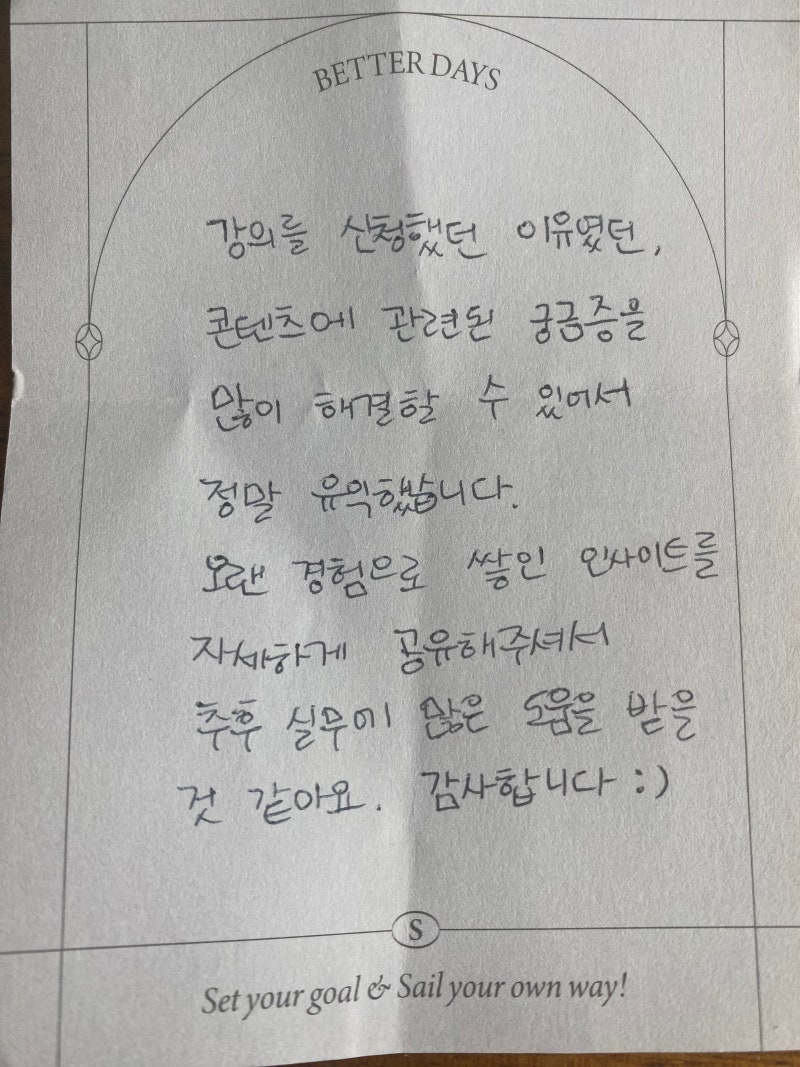 BETTER DAYS
강의를 신청했던 이유였던,
콘텐츠에 관련된 궁금증을
많이 해결할 수 있어서
정말 유익했습니다.
오랜 경험으로 쌓인 인사이트를
자세하게 공유해주셔서
추후 실무에 많은 도움을 받을
것 같아요. 감사합니다 :)
S
Set your goal & Sail your own way!